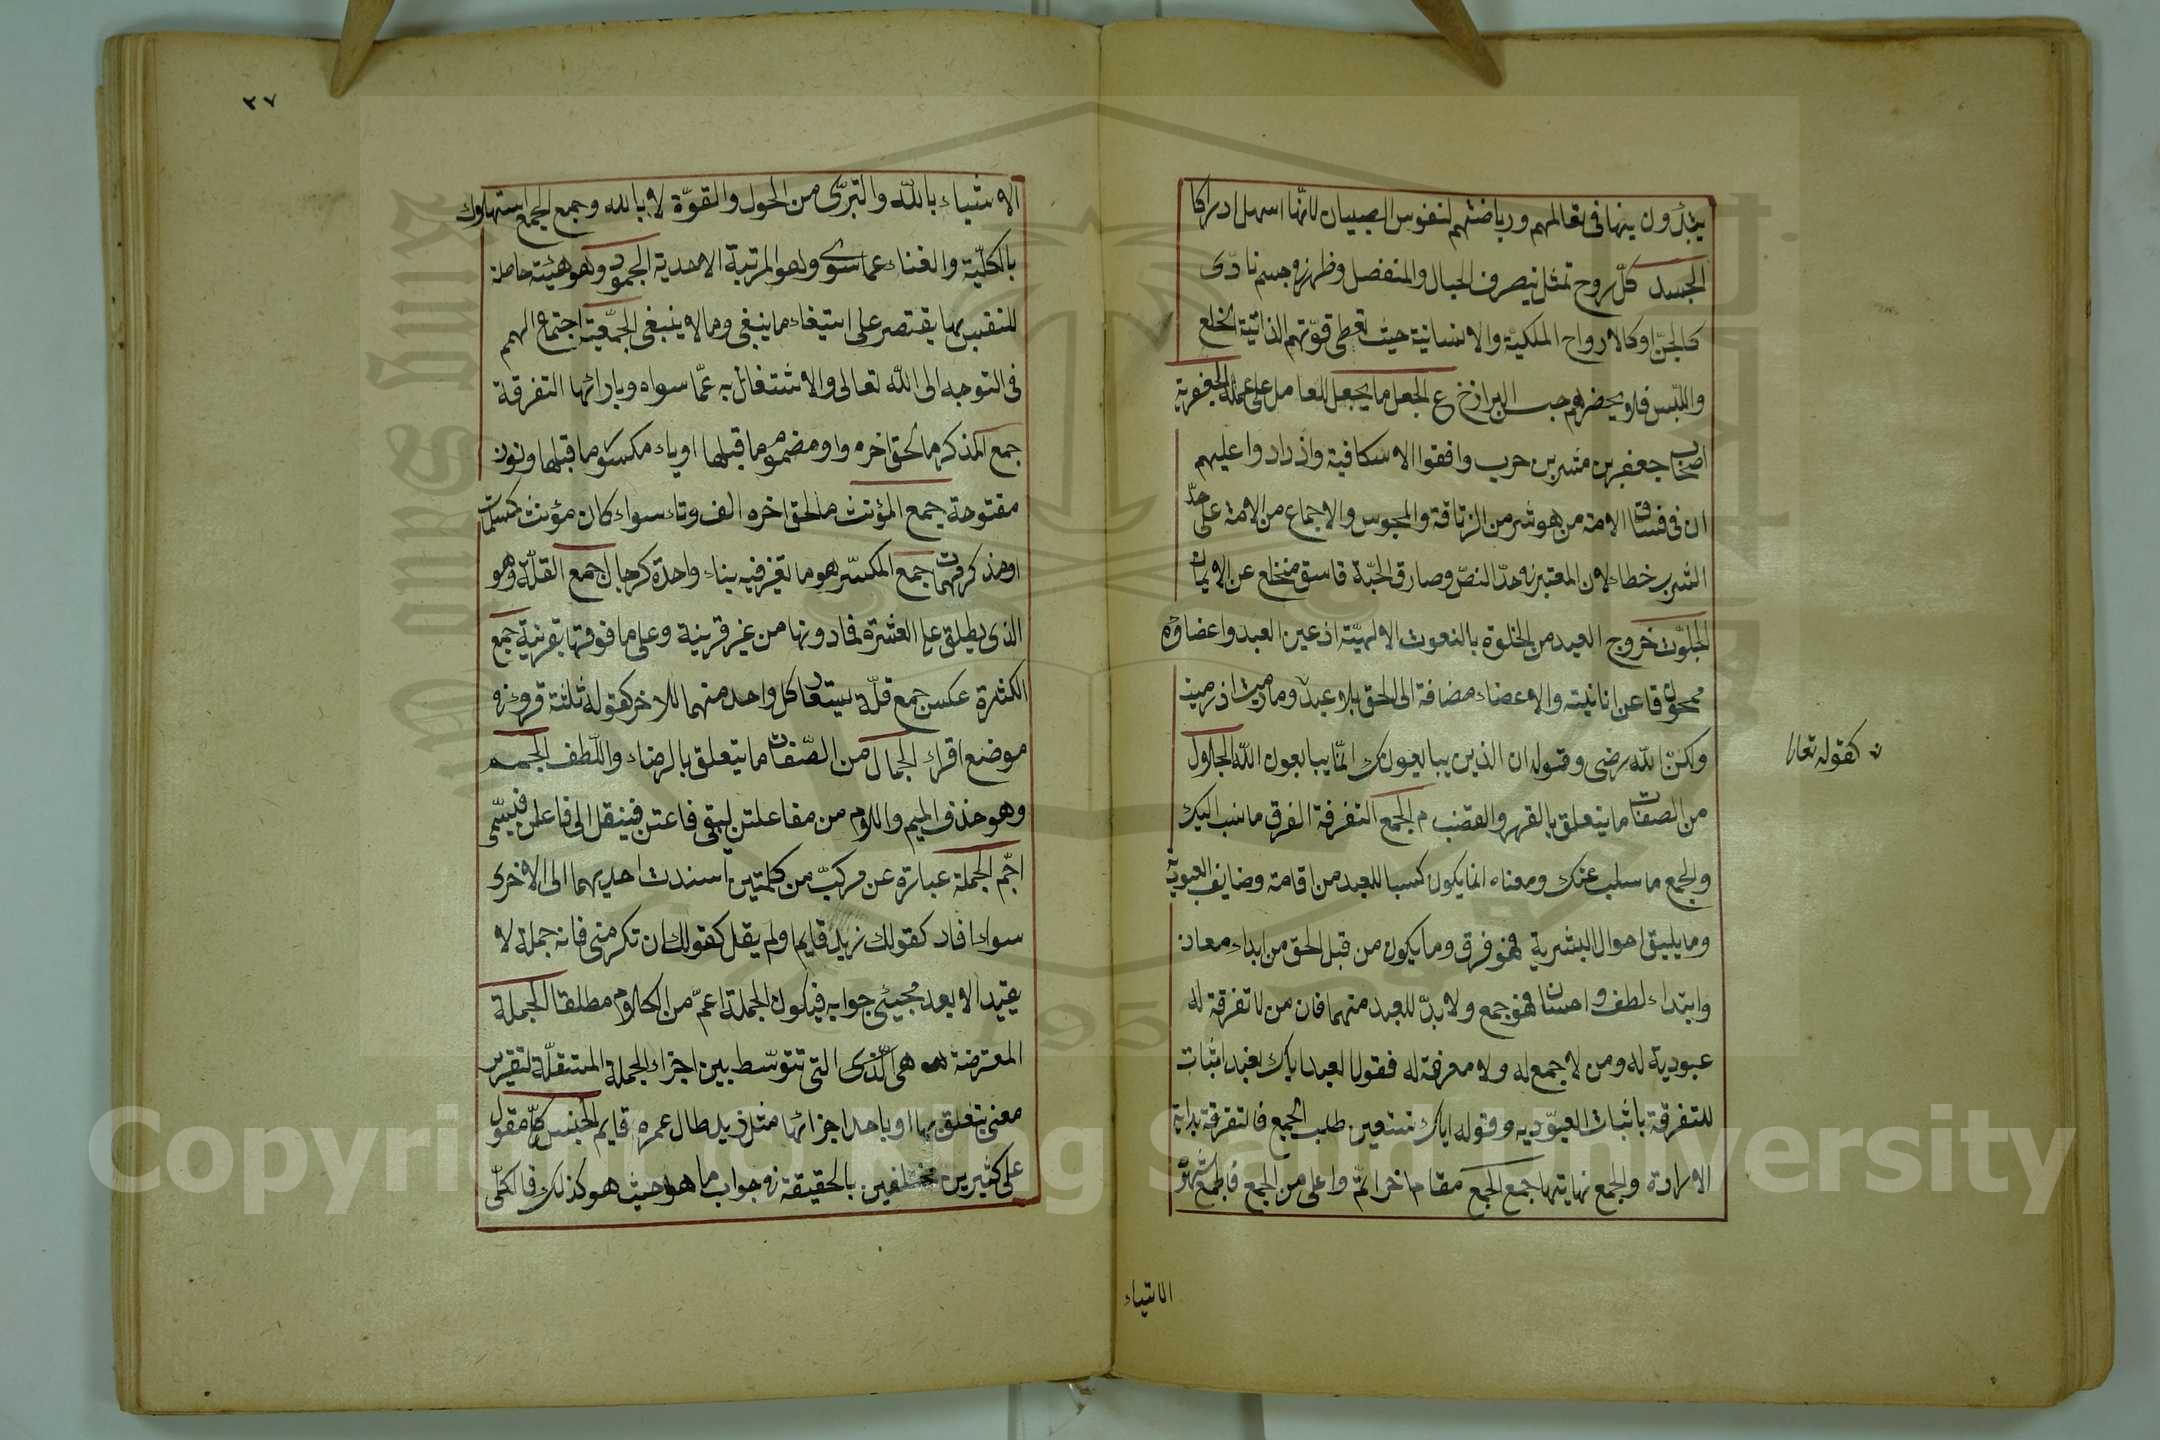 يبتدؤن بها فى تعاليمهم ورياضتهم لنفوس الصبيان لانها اسهل ادراكا
الجسد كل روح تمثل بتصرف الخيال والمنفصل وظهر فى جسم نارى
كالجن او كالارواح الملكية والانسانية حيث تعطى قوتهم الذاتية الخلع
واللبس فلا يحضرهم حبس البرازخ ع الجعل ما يجعل للعامل على عمله الجعفرية
اصحاب جعفر بن مبشر بن حرب وافقوا الاسكافية وازدادوا عليهم
ان فى فساق الامة من هو شر من الزنادقة والمجوس والاجماع من الامة على حد
الشرب خطاء لان المعتبر فى حد النص وصارق الحبة فاسق منخلع عن الايمان
الجلوة خروج العبد من الخلوة بالنعوت الالهية اذ عين العبد واعضاؤه
ممحوة عن انانيته والاعضاء مضافة الى الحق بلا عبد وما رميت اذ رميت
ولكن الله رمى وقوله ان الذين يبايعونك انما يبايعون الله الجلال
ن كقوله تعالى
من الصفات ما يتعلق بالقهر والغضب م الجمع التفرقة الفرق ما نسب اليك
والجمع ما سلب عنك ومعناه انما يكون كسبا للعبد من اقامة وضايف العبودية
وما يليق احوال البشرية فهو فرق وما يكون من قبل الحق من ابداء معان
وابتداء لطف واحسان فهو جمع ولا بد للعبد منهما فان من لا تفرقة له
عبودية له ومن لا جمع له ولا معرفة له فقول العبد اياك نعبد اثبات
للتفرقة باثبات العبودية وقوله اياك نستعين طلب الجمع فالتفرقة بداية
الارادة والجمع نهايتها جمع الجمع مقام اخر اتم واعلى من الجمع فالجمع شهود
الاشياء
٢٧
الاشياء بالله والتبرى من الحول والقوة لا بالله وجمع الجمع استهلاك
بالكلية والفناء عما سوى وهو المرتبة الاحدية الجمود وهو هيئة حاصلة
للنفس بها يقتصر على استيفاء ما ينبغى وما لا ينبغى الجمعية اجتماع الهمم
فى التوجه الى الله تعالى والاشتغال به عما سواه وبازائها التفرقة
جمع المذكر ما لحق اخره واو مضموم ما قبلها او ياء مكسور ما قبلها ونون
مفتوحة جمع المؤنث ما لحق اخره الف وتاء سواء كان مؤنث كمسلمات
او مذكر جمع المكسر هو ما تغير فيه بناء واحدة كرجال جمع القلة وهو
الذى يطلق على العشرة فما دونها من غير قرينة وعلى ما فوقها بقرينة جمع
الكثرة عكس جمع قلة يستعار كل واحد منهما للاخر كقوله ثلثة قروء فى
موضع اقراء الجمال من الصفات ما يتعلق بالرضاء واللطف الجمم
وهو حذف الميم واللام من مفاعلتن ليبقى فاعتن فينقل الى فاعلن فيسمى
اجم الجملة عبارة عن مركب من كلمتين اسندت احديهما الى الاخرى
سواء افاد كقولك زيد قايم ولم يقل كقولك ان تكرمنى فانه جملة لا
يفيد الا بعد مجيئ جوابه فيكون الجملة اعم من الكلام مطلقا الجملة
المعترضة هى الذى التى تتوسط بين اجزاء الجملة المستقلة لتقرير
معنى يتعلق بها او باحد اجزائها مثل زيد طال عمره قايم الجنس كل مقول
على كثيرين مختلفين بالحقيقة فى جواب ما هو حيث هو كذلك فالكلى